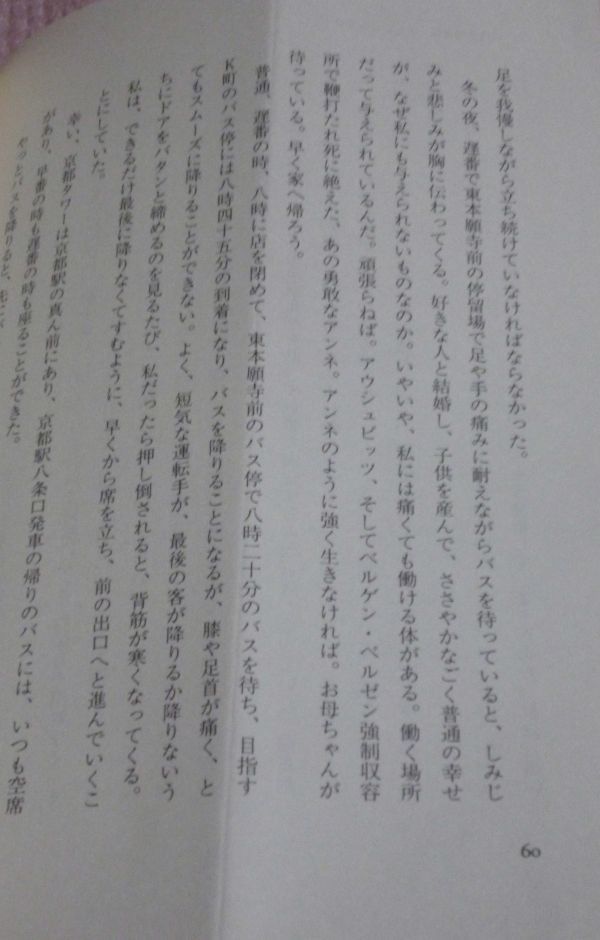 足を我慢しながら立ち続けていなければならなかった。
冬の夜、遅番で東本願寺前の停留場で足や手の痛みに耐えながらバスを待っていると、しみじ
みと悲しみが胸に伝わってくる。好きな人と結婚し、子供を産んで、ささやかなごく普通の幸せ
が、なぜ私にも与えられないものなのか。いやいや、私には痛くても働ける体がある。働く場所
だって与えられているんだ。頑張らねば。アウシュビッツ、そしてベルゲン・ベルゼン強制収容
所で鞭打たれ死に絶えた、あの勇敢なアンネ。アンネのように強く生きなければ。お母ちゃんが
待っている。早く家へ帰ろう。
普通、遅番の時、八時に店を閉めて、東本願寺前のバス停で八時二十分のバスを待ち、目指す
K町のバス停には八時四十五分の到着になり、バスを降りることになるが、膝や足首が痛く、と
てもスムーズに降りることができない。よく、短気な運転手が、最後の客が降りるか降りないう
ちにドアをバタンと締めるのを見るたび、私だったら押し倒されると、背筋が寒くなってくる。
私は、できるだけ最後に降りなくてすむように、早くから席を立ち、前の出口へと進んでいくこ
とにしていた。
幸い、京都タワーは京都駅の真ん前にあり、京都駅八条口発車の帰りのバスには、いつも空席
があり、早番の時も遅番の時も座ることができた。
やっとバスを降りると、先に
60